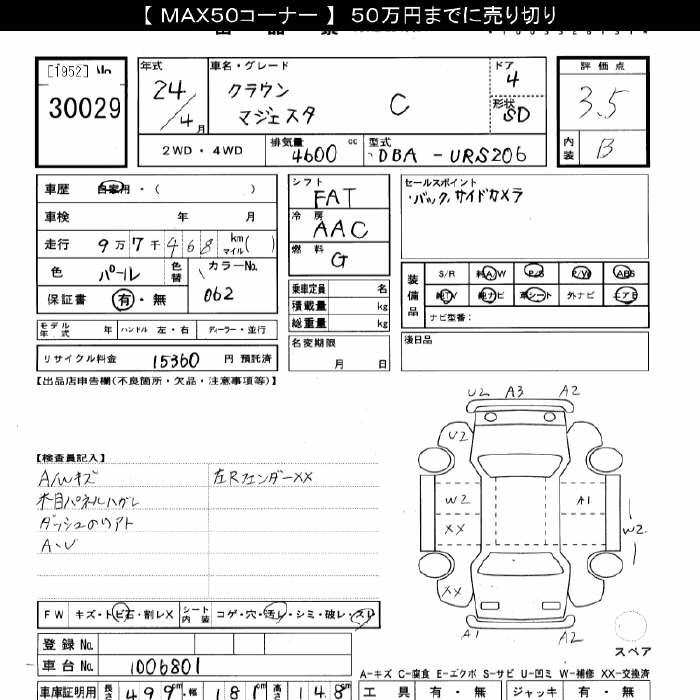 【 MAX50コーナー 】 50万円までに売り切り
[1952] No
30029
年式
24/4月
車名・グレード
クラウン
マジェスタ C
ドア
4
形状
SD
評価点
3.5
内装 B
2WD・4WD
排気量 4600 cc
型式 DBA - URS206
車歴 自家用・( )
車検 年 月
走行 9万7千468 km マイル( )
色 パール 色替 カラーNo. 062
保証書 有・無
シフト FAT
冷房 AAC
燃料 G
セールスポイント
・バック,サイドカメラ
乗車定員 名
積載量 kg
総重量 kg
名変期限
月 日
装備品
S/R 純A/W P/S P/W ABS
純TV 純ナビ 革シート 外ナビ エアB
ナビ型番:
後日品
モデル年式 年 ハンドル 左・右 ディーラー・並行
リサイクル料金 15360 円 預託済
【出品店申告欄(不良箇所・欠品・注意事項等)】
【検査員記入】
A/Wキズ
木目パネルハガレ
ダッシュのリアト
A・U
左Rフェンダー××
U2 A3 A2
U2
W2
XX
XX
A1
W2
A1
A2
スペア
FW キズ・トビ石・割レX シート内装 コゲ・穴・汚レ・シミ・破レ・スレ
登録No.
車台No. 1006801
A-キズ C-腐食 E-エクボ S-サビ U-凹ミ W-補修 XX-交換済
車庫証明用 長さ 499cm 幅 181cm 高さ 148
工具 有・無 ジャッキ 有・無